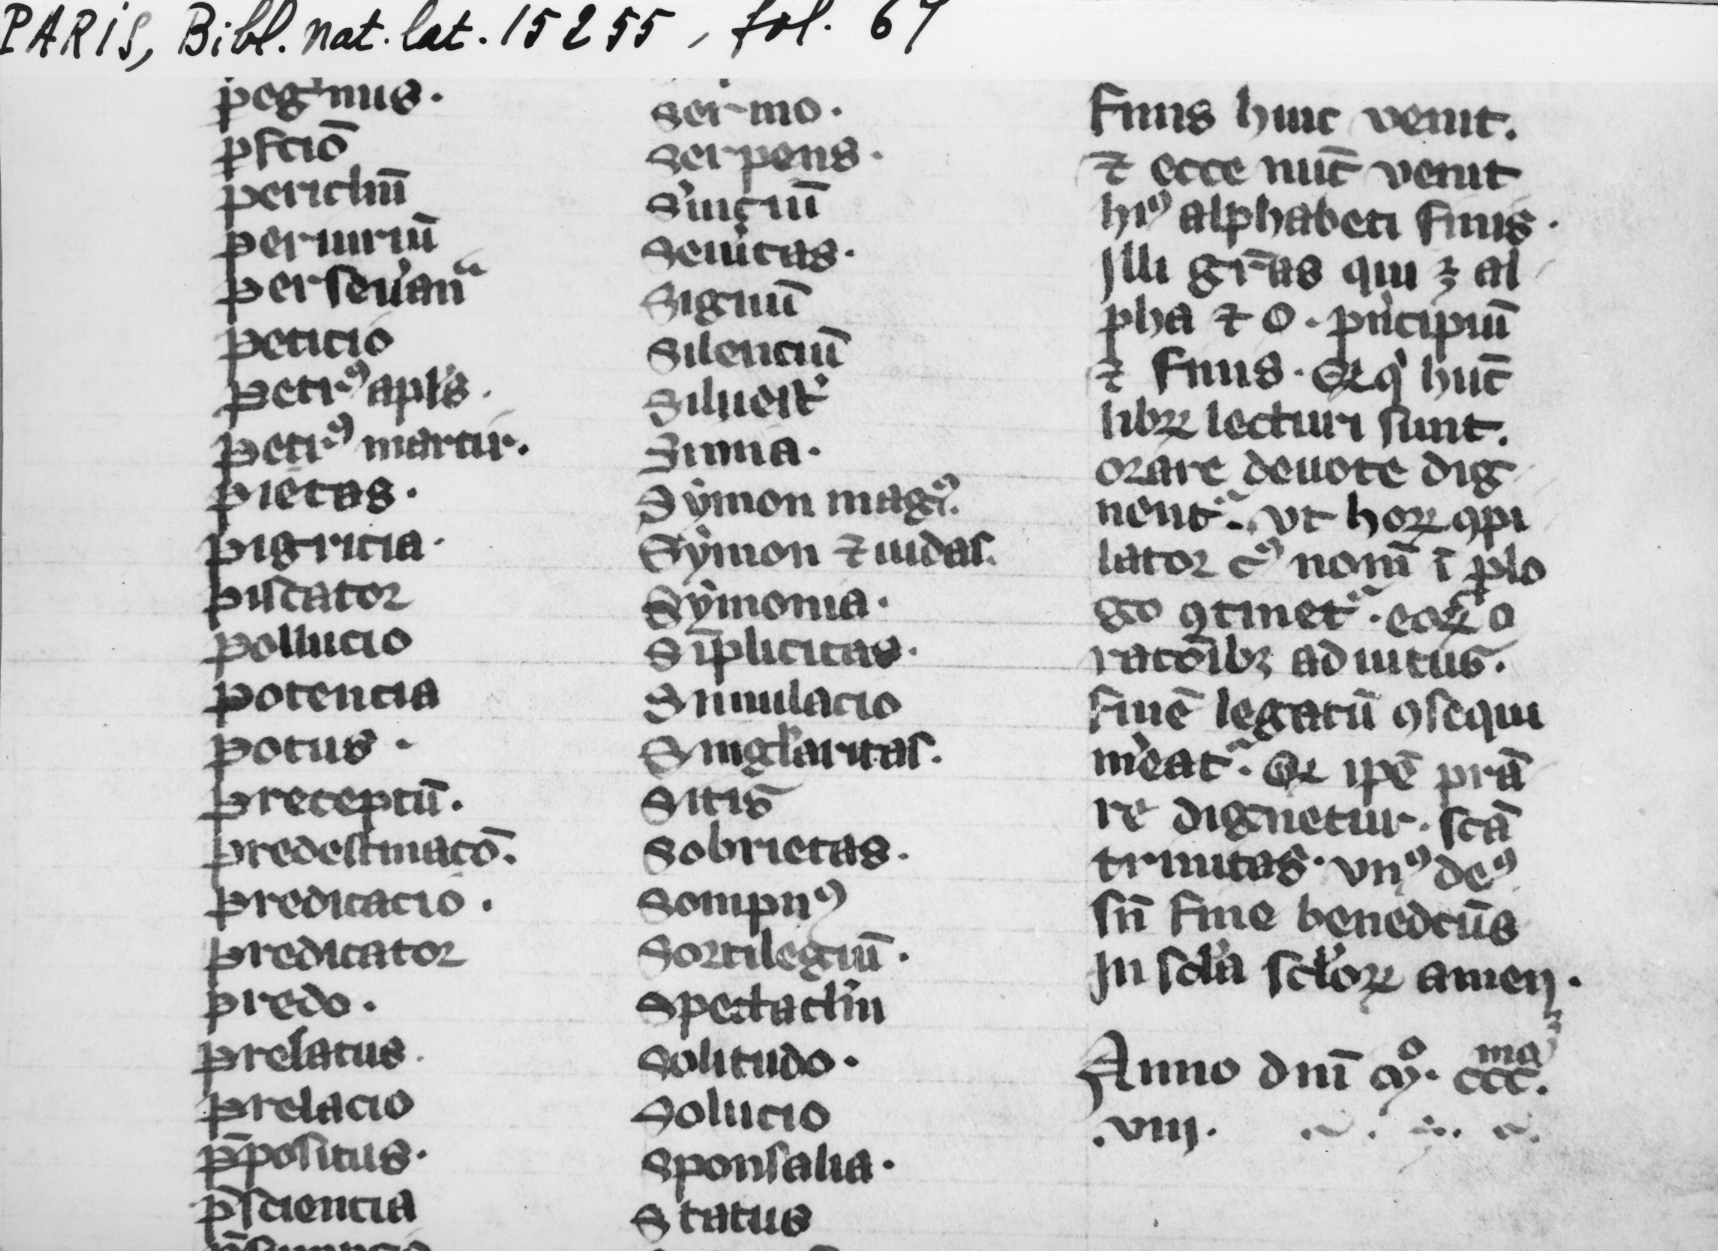 PARIS, Bibl. nat. lat. 15255, fol. 67
pegͥnus.
pfcio̅
periclm̅
periuriu̅
perseu̓anᷓ
peticio
petrꝰ apl̓s.
petrꝰ martir.
pietas.
pigricia.
piscator
pollucio
potencia
potus.
preceptu̅.
predestinaco̅.
predicacio.
predicator
predo.
prelatus.
prelacio
p̅positus.
p̅sciencia
sermo.
serpens.
S̓uiciu̅
Seuitas.
Signu̅
Silenciu̅
Siluest̓
Simia.
Sẏmon magꝰ.
Sẏmon ⁊ iudas.
Sẏmonia.
Si̅plicitas.
Simulacio
Singl̓aritas.
Sitis
Sobrietas.
Sompnꝰ
Sortilegiu̅.
Spectacl̓m
Solitudo.
Solucio
Sponsalia.
Status
finis huic venit.
⁊ ecce nu̅c venit
hiꝰ alphabeti finis.
Illi gr̅as qui ꝫ al
pha ⁊ O. pͥncipiu̅
⁊ finis. Et qͥ hu̅c
libꝝ lecturi sunt.
orare deuote dig
nentᷣ. vt hoꝝ ꝯpi
lator cꝰ nom̅ i̅ plo
go ꝯtinetᷣ. eoꝝ o
rato̅ibꝫ adiutus.
fine̅ legatu̅ ꝯsequi
m̓eatᷣ. Qd̓ ip̅e pra̅
re dignetur. sca̅
trinitas. vnꝰ deꝰ
sn̅ fine bened̅cus
In scl̓a scl̓oꝝ amen.
Anno dni̅ mͦ. cccᵐᵒ.
.viij.